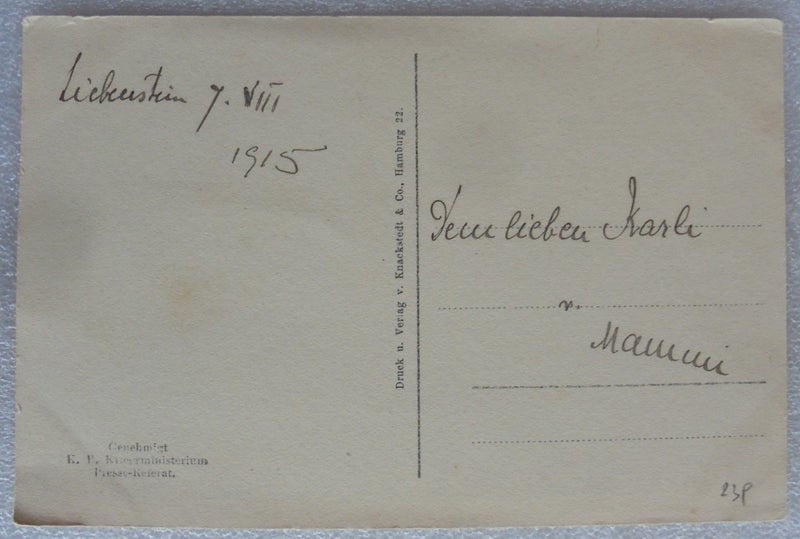 Liebenstein 7. VIII
1915
Druck u. Verlag v. Knackstedt & Co., Hamburg 22.
Dem lieben Karli
v.
Mammi
Genehmigt
K. K. Kriegsministerium
Presse-Referat.
23P